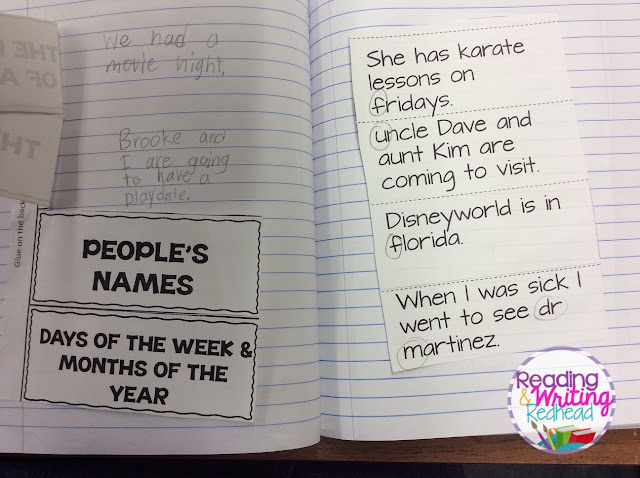 THE
OF A
THE
We had a
movie night.
Brooke and
I are going
to have a
playdate.
Glue on the back
PEOPLE'S
NAMES
DAYS OF THE WEEK &
MONTHS OF THE
YEAR
She has karate
lessons on
fridays.
uncle Dave and
aunt Kim are
coming to visit.
Disneyworld is in
florida.
When I was sick I
went to see dr
martinez.
Reading
& Writing
Redhead